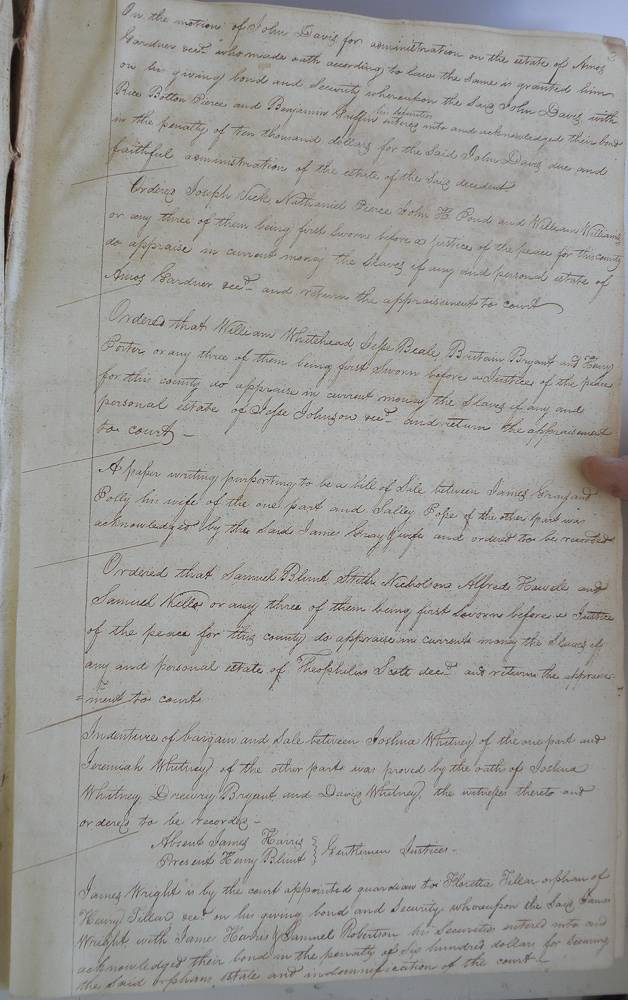 On the motion of John Davis for administration on the estate of Amos
Gardner decd. who made oath according to law the same is granted him
on his giving bond and security whereupon the said John Davis with
Rice Bolton Pierce and Benjamin Griffin his securities entered into and acknowledged their bond
in the penalty of ten thousand dollars for the said John Davis due and
faithful administration of the estate of the said decedent.
Ordered Joseph Vick Nathaniel Pierce John H. Pond and William Williams
or any three of them being first sworn before a justice of the peace for this county
do appraise in current money the slaves if any and personal estate of
Amos Gardner decd. and return the appraisement to court
Ordered that William Whitehead Jesse Beale, Britain Bryant and Henry
Porter, or any three of them being first sworn before a Justice of the peace
for this county do appraise in current money the slaves if any and
personal estate of Jesse Johnson decd. and return the appraisement
to court –
A paper writing purporting to be a bill of sale between James Gray and
Polly his wife of the one part and Salley Pope of the other part was
acknowledged by the said James Gray & wife and ordered to be recorded
Ordered that Samuel Blunt Stith Nicholson Alfred Howell and
Samuel Kello or any three of them being first sworn before a Justice
of the peace for this county do appraise in current money the slaves if
any and personal estate of Theophilus Scott decd. and return the appraise-
=ment to court
Indenture of bargain and sale between Joshua Whitney of the one part and
Jeremiah Whitney of the other part was proved by the oath of Joshua
Whitney, Drewry Bryant and Davis Whitney, the witnesses thereto and
ordered to be recorded –
Absent James Harris } Gentlemen Justices –
Present Henry Blunt
James Wright is by the court appointed guardian to Tillar orphan of
Henry Tillar decd. on his giving bond and security, whereupon the said James
Wright with James Harris & Samuel Robertson his securities entered into and
acknowledged their bond in the penalty of six hundred dollars for securing
the said orphans estate and indemnification of the court –